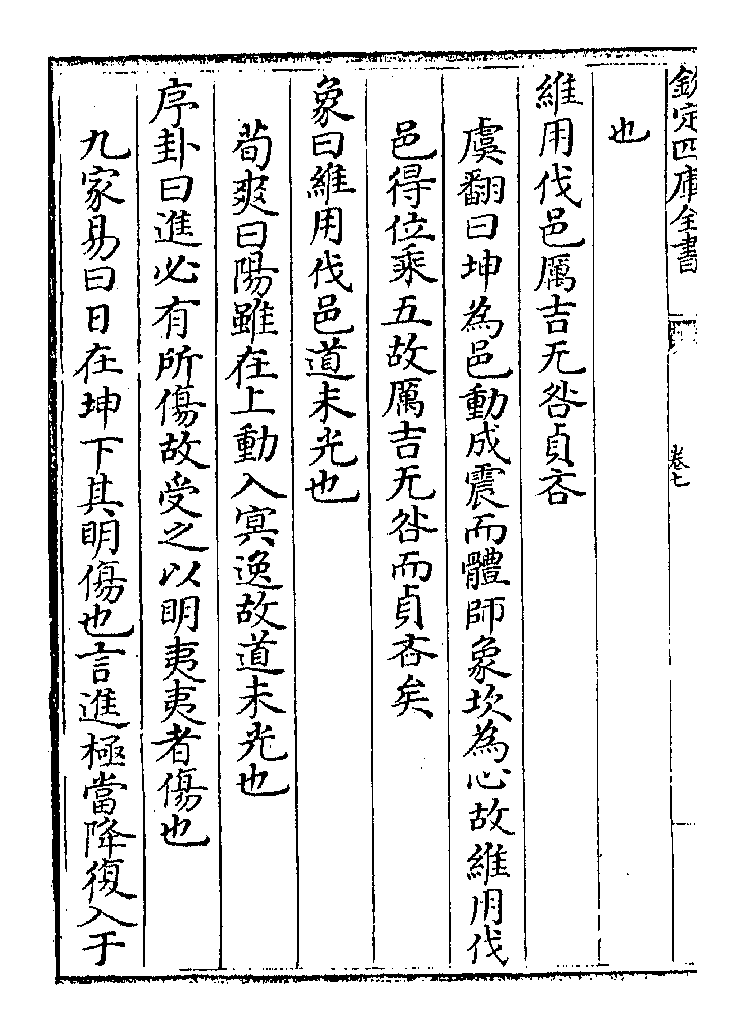 欽定四庫全書 卷七
也
維用伐邑厲吉无咎貞吝
虞翻曰坤為邑動成震而體師象坎為心故維用伐
邑得位乘五故厲吉无咎而貞吝矣
象曰維用伐邑道未光也
荀爽曰陽雖在上動入冥逸故道未光也
序卦曰進必有所傷故受之以明夷夷者傷也
九家易曰日在坤下其明傷也言進極當降復入于